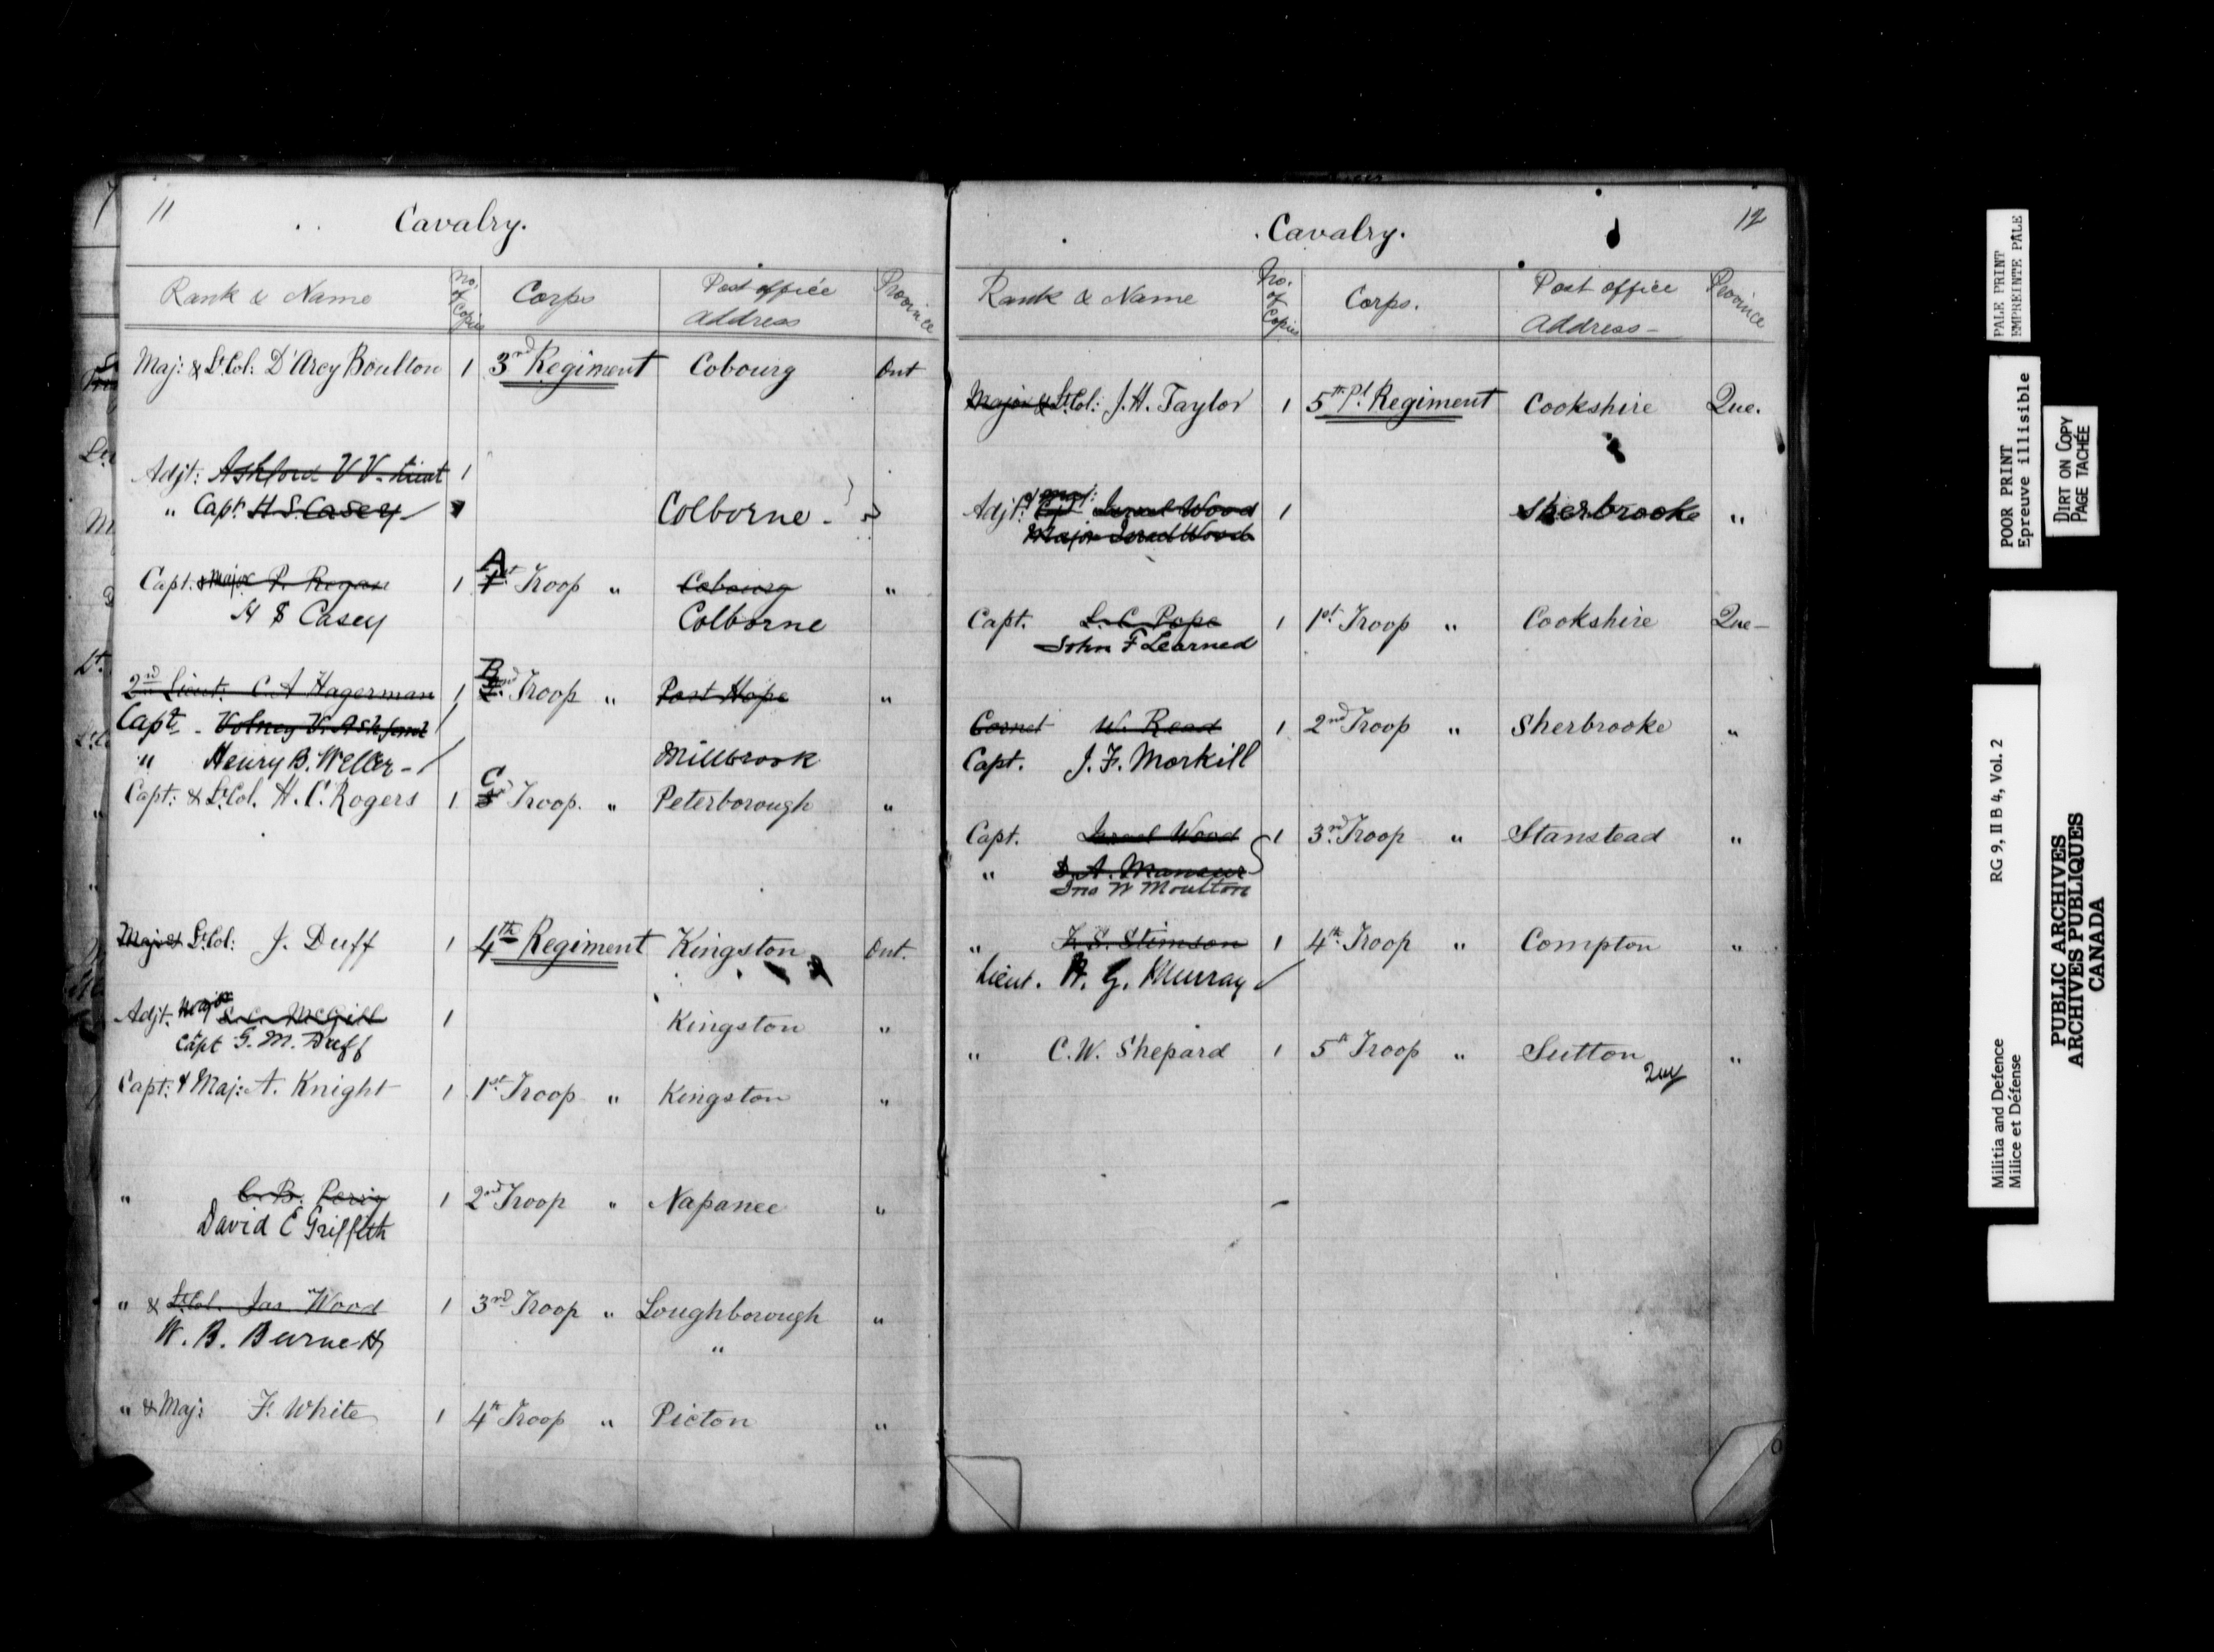 11
Cavalry.
Rank & Name No. of Copies Corps Post office Address Province
Maj: & Lt Col: D'Arcy Boulton 1 3rd Regiment Cobourg Ont
Adjt: Ashford V V. Lieut 1
" Capt H S. Casey Colborne -
A
Capt. & Major P. Rogan 1 1st Troop " Cobourg "
H S Casey Colborne
B
2nd Lieut. C A Hagerman 1 2nd Troop " Port Hope "
Capt - Volney V. Ashford /
" Henry B. Weller - / Millbrook
C
Capt: & Lt Col. H. C. Rogers 1 3rd Troop. " Peterborough "
Maj & Lt Col: J. Duff 1 4th Regiment Kingston Ont.
Adjt. Major S. C. McGill 1 Kingston "
Capt G. M. Duff
Capt: & Maj: A. Knight 1 1st Troop " Kingston "
" C. B. Perry 1 2nd Troop " Napanee "
David E Griffith
" & Lt Col. Jas Wood 1 3rd Troop " Loughborough "
W. B. Burnett "
" & Maj: F. White 1 4th Troop " Picton "
12
Cavalry.
Rank & Name No. of Copies Corps. Post office Address - Province
Major & Lt Col: J. H. Taylor 1 5th P.l Regiment Cookshire Que.
Adjt: & Maj: Israel Wood 1 Sherbrooke "
Major Israel Wood
Capt. L. C. Pope 1 1st Troop " Cookshire Que -
John F Learned
Cornet W. Read 1 2nd Troop " Sherbrooke "
Capt. J. F. Morkill
Capt. Israel Wood 1 3rd Troop " Stanstead "
" D. A. Mansur
Jno W Moulton
" F. S. Stimson 1 4th Troop " Compton "
Lieut. W. G. Murray /
" C. W. Shepard 1 5th Troop " Sutton "
Que
PALE PRINT
EMPREINTE PÂLE
POOR PRINT
Epreuve illisible
DIRT ON COPY
PAGE TACHÉE
Militia and Defence RG 9, II B 4, Vol. 2
Milice et Défense
PUBLIC ARCHIVES
ARCHIVES PUBLIQUES
CANADA